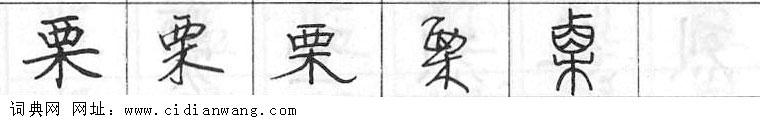 栗 栗 栗 栗 栗
词典网 网址：www.cidianwang.com